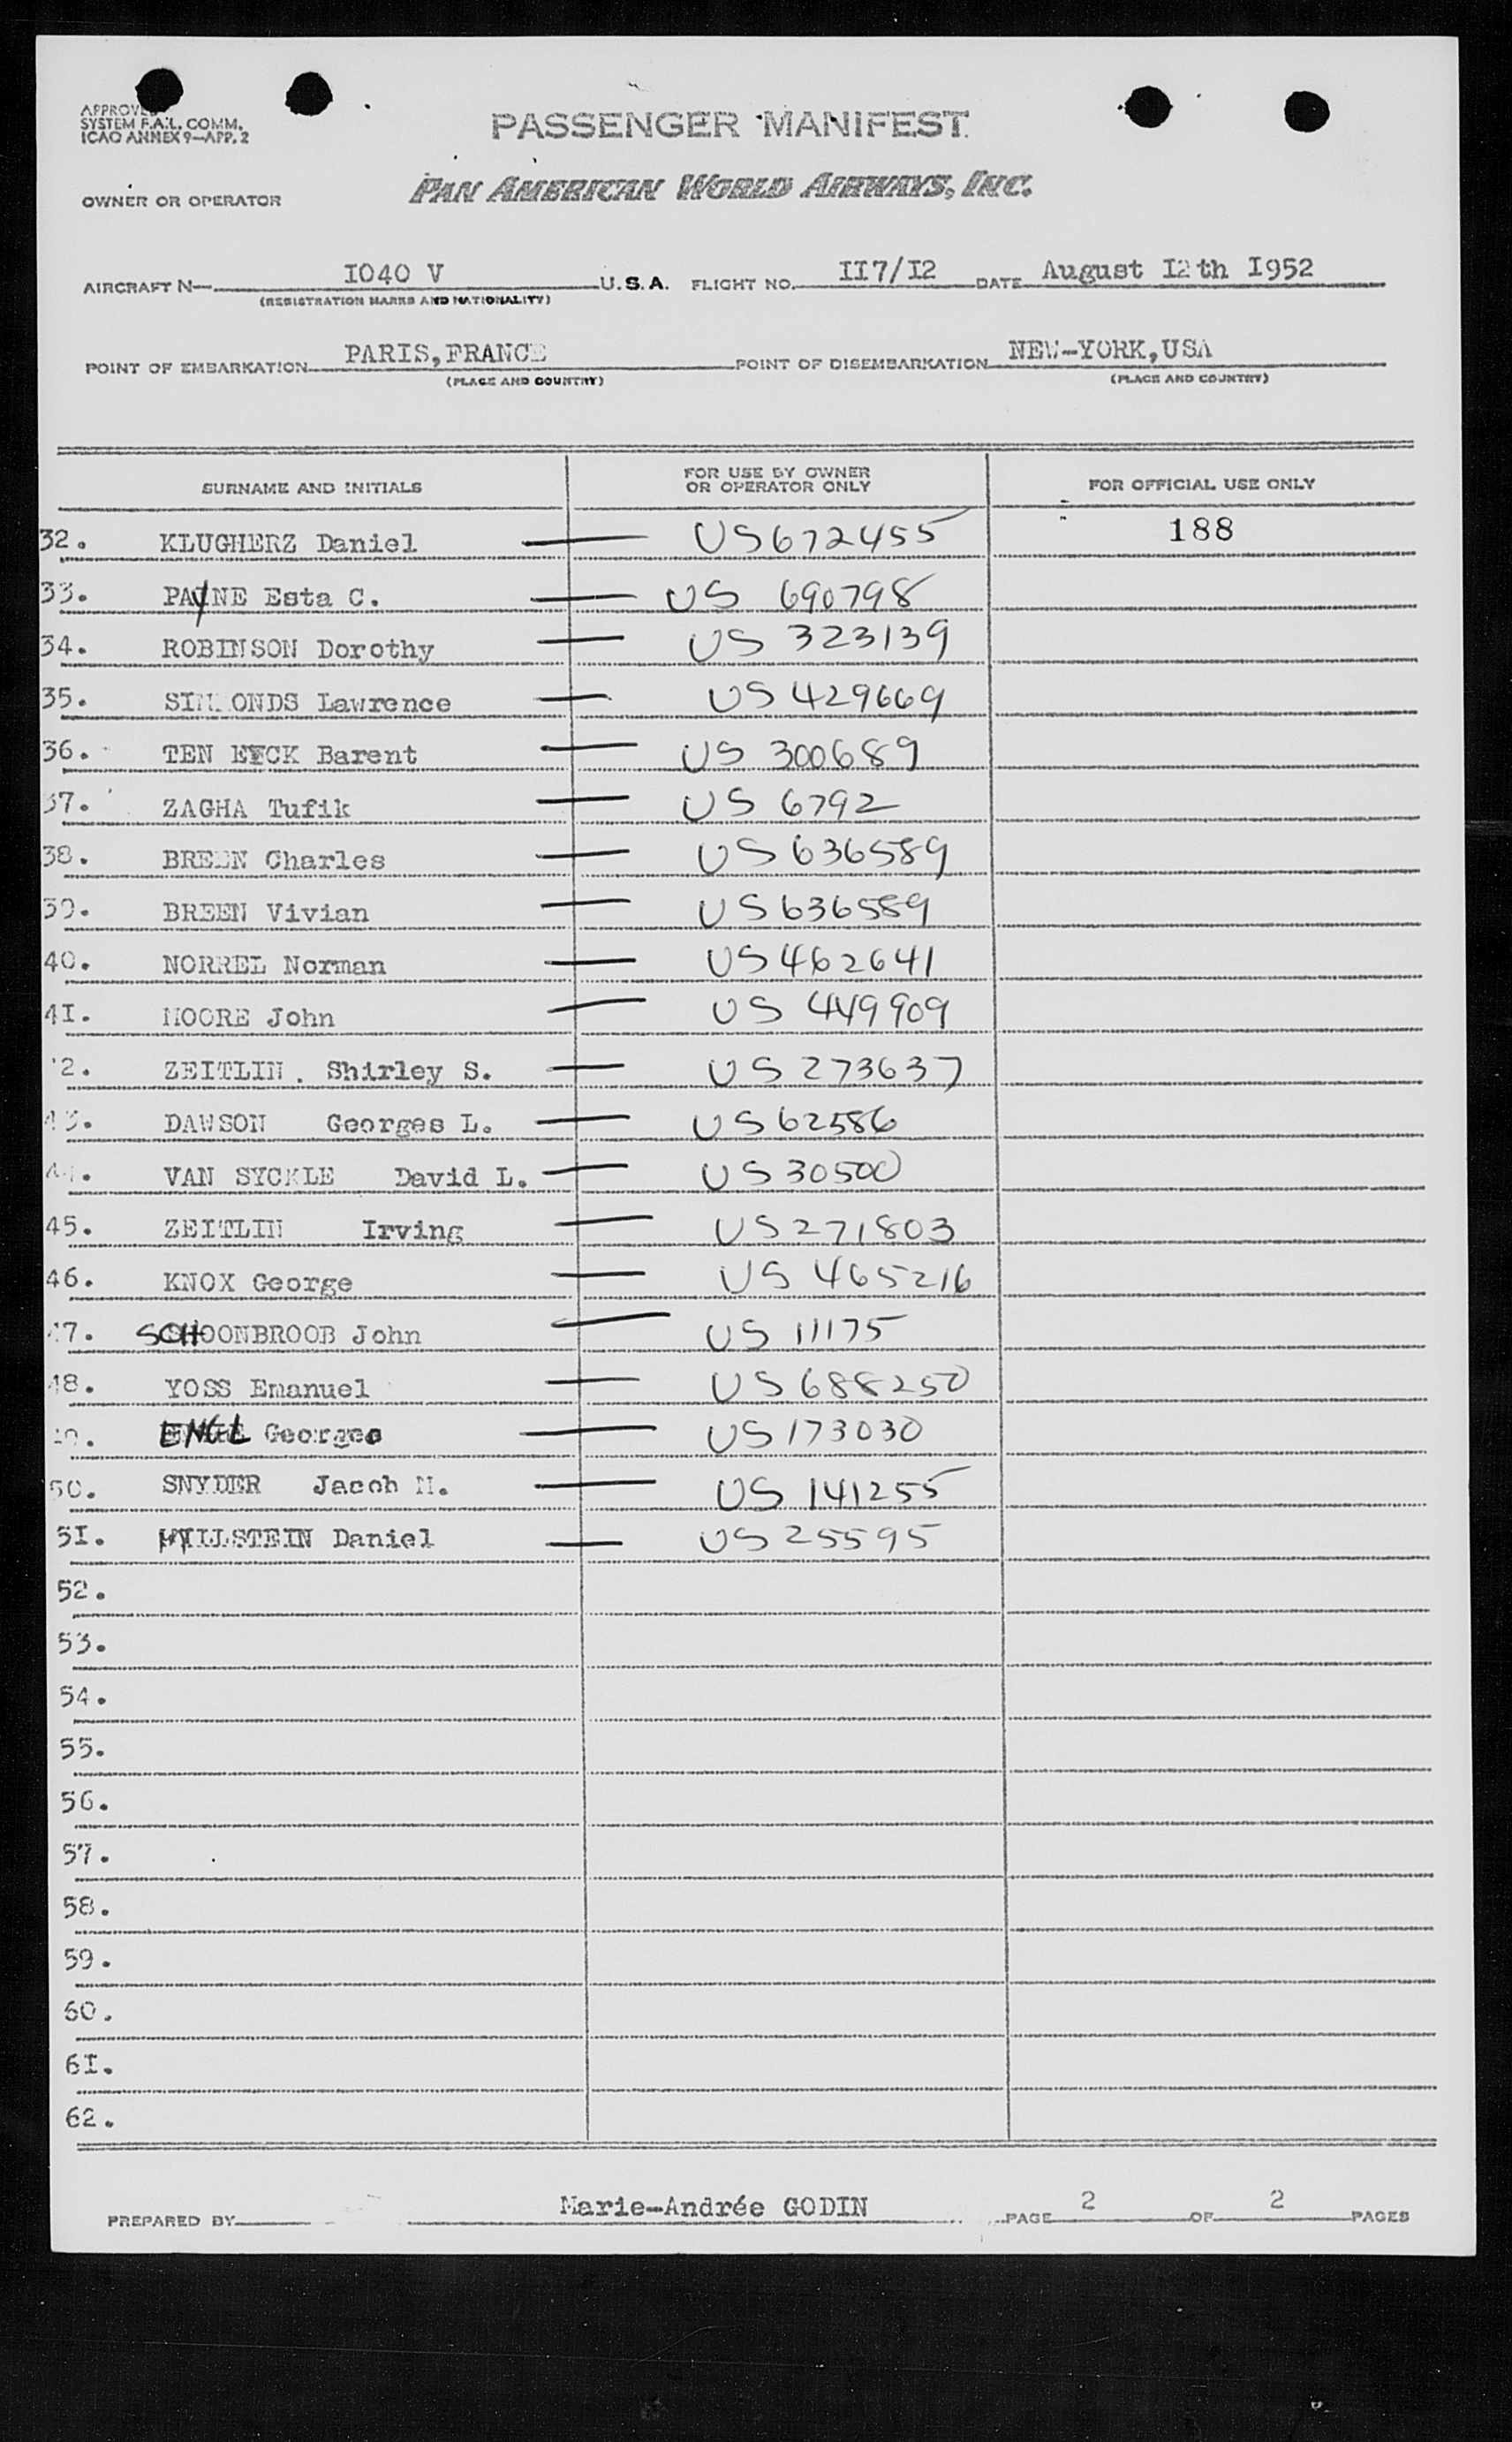 APPROVED
SYSTEM F.A.L. COMM.
ICAO ANNEX 9-APP. 2
PASSENGER MANIFEST
OWNER OR OPERATOR PAN AMERICAN WORLD AIRWAYS, INC.
AIRCRAFT N- I040 V U.S.A. FLIGHT NO. II7/I2 DATE August I2th I952
(REGISTRATION MARKS AND NATIONALITY)
POINT OF EMBARKATION PARIS,FRANCE POINT OF DISEMBARKATION NEW-YORK,USA
(PLACE AND COUNTRY) (PLACE AND COUNTRY)
SURNAME AND INITIALS FOR USE BY OWNER OR OPERATOR ONLY FOR OFFICIAL USE ONLY
32. KLUGHERZ Daniel — US672455 188
33. PAYNE Esta C. — US 690798
34. ROBINSON Dorothy — US 323139
35. SIMMONDS Lawrence — US 429669
36. TEN EYCK Barent — US 300689
37. ZAGHA Tufik — US 6792
38. BREEN Charles — US636589
39. BREEN Vivian — US636589
40. NORREL Norman — US462641
4I. MOORE John — US 449909
42. ZEITLIN. Shirley S. — US 273637
43. DAWSON Georges L. — US62586
44. VAN SYCKLE David L. — US30500
45. ZEITLIN Irving — US271803
46. KNOX George — US 465216
47. SCHOONBROOB John — US 11175
48. YOSS Emanuel — US688250
49. ENGL Georges — US173030
50. SNYDER Jacob M. — US 141255
5I. Daniel — US25595
52.
53.
54.
55.
56.
57.
58.
59.
60.
6I.
62.
PREPARED BY Marie-Andrée GODIN PAGE 2 OF 2 PAGES